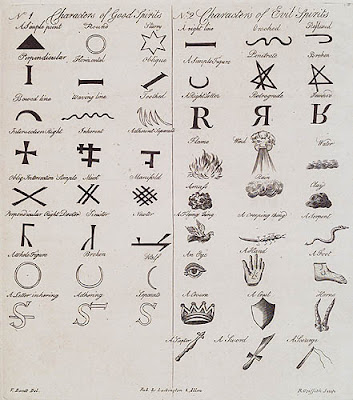 No. 1 Characters of Good Spirits
A Simple point Round Starry
Perpendicular Horizontal Oblique
Bowed line Waving line Toothed
Intersection Right Inherent Adherent Separate
Obliq Intersection Simple Mixt Manifold
Perpendicular Right Dexter Sinister Neuter
A whole Figure Broken Half
A Letter inhering Adhering Separate
No. 2 Characters of Evil Spirits
A right line Crooked Reflexed
A Simple Figure Penetrate Broken
A Right letter Retrograde
R
Flame Wind Water
A mass Rain Clay
A Flying thing A creeping thing A Serpent
An Eye A Hand A Foot
A Crown A Crest Horns
A Scepter A Sword A Scourge
F. Barrett Del. Pub. by Lackington & Allen R. Griffith Sculp.